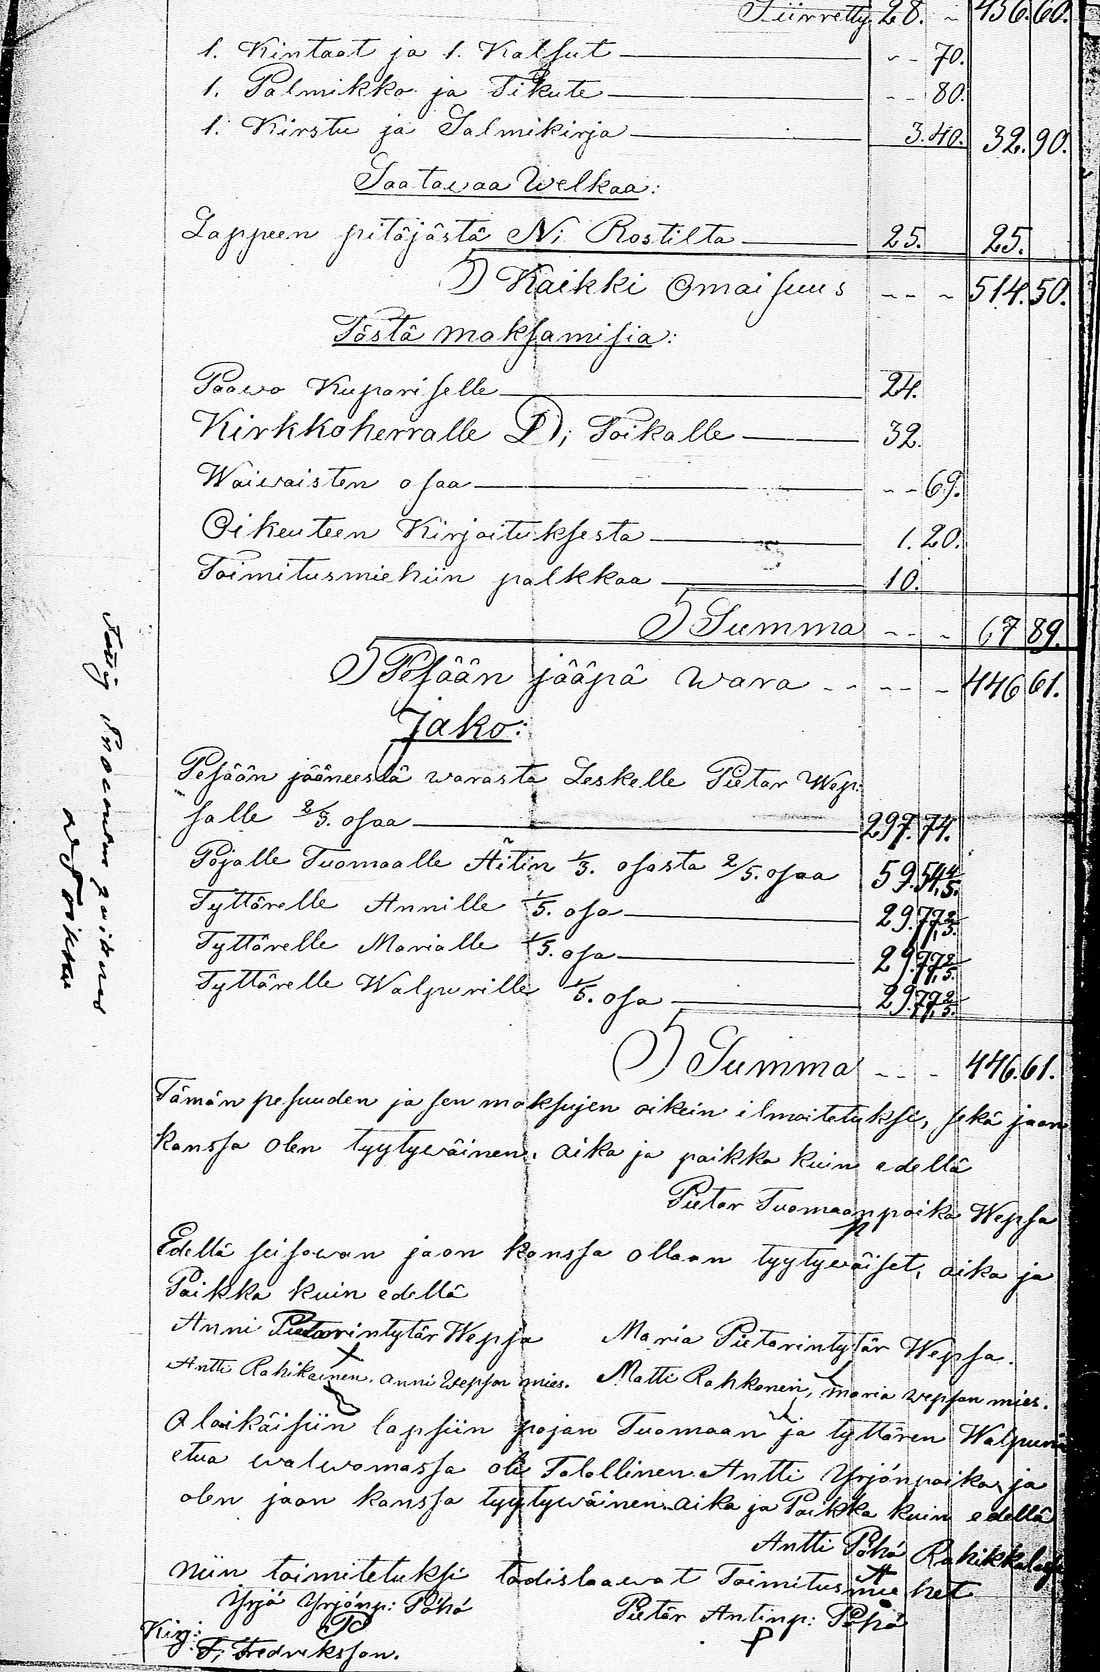 Siirretty 28. ~ 456.60.
1. Kintaat ja 1. Kalsut - - 70.
1. Palmikko ja Tikute - - 80.
1. Kirstu ja Salmikirja 3.40. 32.90.
Saatawaa Welkaa:
Lappeen pitäjästä N; Rostilta 25. 25.
Kaikki Omaisuus - - ~ 514.50.
Tästä maksamisia:
Paawo Kupariselle 24.
Kirkkoherralle D; Poikalle 32.
Waiwaisten osaa - - 69.
Oikeuteen Kirjoituksesta 1.20.
Toimitusmiehiin palkkaa 10.
Summa - - - 67 89.
Pesään jääpä wara - - - - - 446 61.
Jako:
Pesään jääneestä warasta Leskelle Pietar Wep:
salle 2/3. osaa 297.74.
Pojalle Tuomaalle Äitin 1/3. osasta 2/5. osaa 59.54 4/5.
Tyttärelle Annille 1/5. osa 29.77 2/5.
Tyttärelle Marialle 1/5. osa 29.77 2/5.
Tyttärelle Walpurille 1/5. osa 29.77 2/5.
Summa - - - 446.61.
Tämän pesuuden ja sen maksujen oikein ilmoitetuksi, sekä jaon
kanssa olen tyytywäinen, aika ja paikka kuin edellä
Pietar Tuomaanpoika Wepsa
Edellä seisowan jaon kanssa ollaan tyytywäiset, aika ja
Paikka kuin edellä
Anni Pietarintytär Wepsa Maria Pietarintytär Wepsa.
Antti Rahikainen. Anni Wepsan mies. Matti Rahkonen, Maria wepsan mies.
Alaikäisiin lapsiin pojan Tuomaan ja tyttären Walpurin
etua walwomassa oli Talollinen Antti Yrjönpoika, ja
olen jaon kanssa tyytywäinen. aika ja Paikka kuin edellä
Antti Pöhö
Niin toimitetuksi todistaawat Toimitusmiehet
Yrjö Yrjönp: Pöhö Pietar Antinp: Pöhö
Kirj: F; Fredriksson.